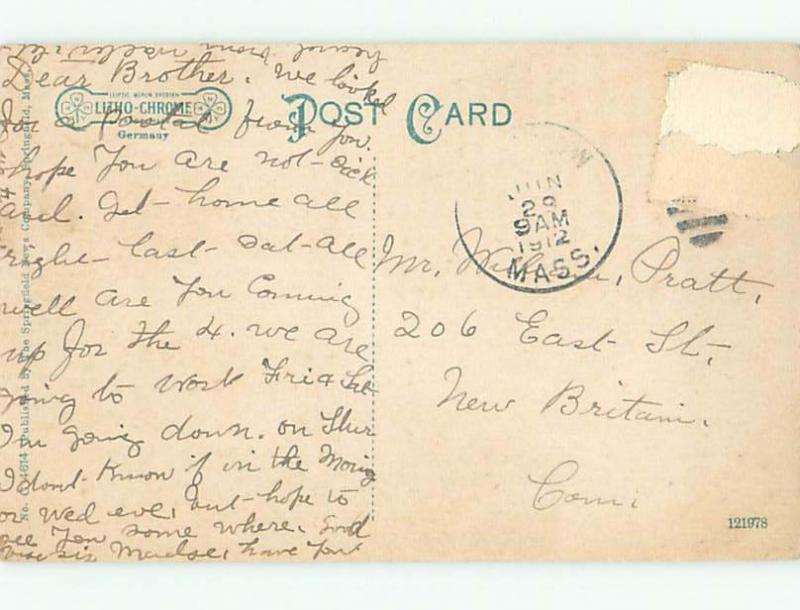 Dear Brother. We looked
for a Postal from you.
hope you are not sick
and. Get home all
right last Sat. All
well are you Coming
up for the 4. we are
going to work Fri & Sat
I'm going down. on Thur
I dont Know if in the Morn
or Wed eve, but hope to
see you some where. Good
have you
heard from
LEIPZIG BERLIN DRESDEN
LITHO-CHROME
Germany
POST CARD
JUN
29
9 AM
1912
MASS.
Mr. William Pratt,
206 East St,
New Britain.
Conn.
121978
Published by The Springfield News Company, Springfield, Mass.